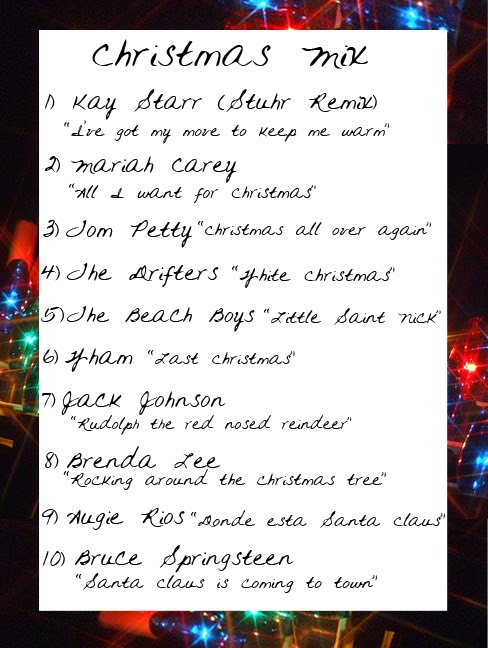 Christmas Mix
1) Kay Starr (Stuhr Remix)
"I've got my move to keep me warm"
2) Mariah Carey
"All I want for christmas"
3) Tom Petty "christmas all over again"
4) The Drifters "White christmas"
5) The Beach Boys "Little Saint Nick"
6) Wham "Last christmas"
7) Jack Johnson
"Rudolph the red nosed reindeer"
8) Brenda Lee
"Rocking around the christmas tree"
9) Augie Rios "Donde esta Santa claus"
10) Bruce Springsteen
"Santa claus is coming to town"